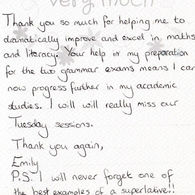 very much
Thank you so much for helping me to
dramatically improve and excel in maths
and literacy. Your help in my preparation
for the two grammar exams means I can
now progress further in my academic
studies. I will will really miss our
Tuesday sessions.
Thank you again,
Emily
P.S. I will never forget one of
the best examples of a superlative!!